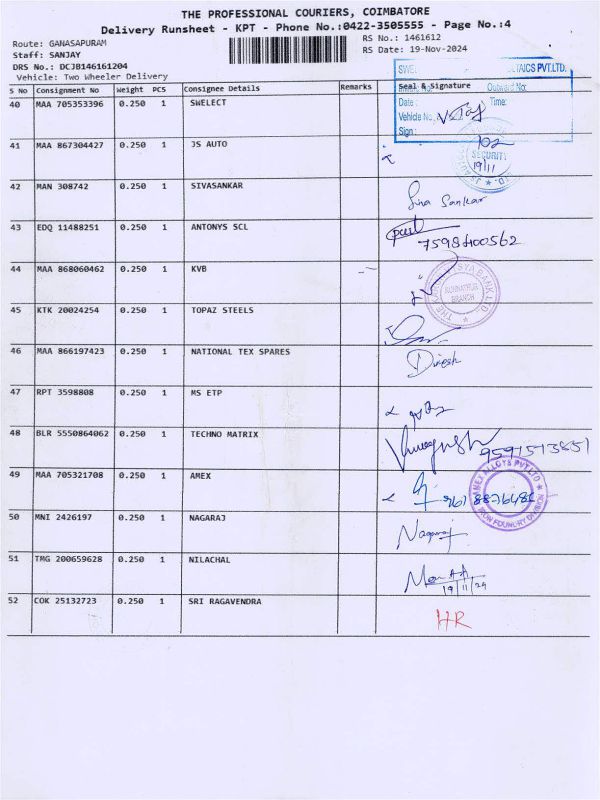 THE PROFESSIONAL COURIERS, COIMBATORE
Delivery Runsheet - KPT - Phone No.:0422-3505555 - Page No.:4
Route: GANASAPURAM
RS No.: 1461612
Staff: SANJAY
RS Date: 19-Nov-2024
DRS No.: DCJB146161204
Vehicle: Two Wheeler Delivery
TAICS PVT.LTD.
S No Consignment No Weight PCS Consignee Details Remarks Seal & Signature
Outward No:
Date : Time:
Vehicle No.
Sign :
40 MAA 705353396 0.250 1 SWELECT
41 MAA 867304427 0.250 1 JS AUTO
SECURITY
19/11
42 MAN 308742 0.250 1 SIVASANKAR
Siva Sankar
43 EDQ 11488251 0.250 1 ANTONYS SCL
7598400562
44 MAA 868060462 0.250 1 KVB
VYSYA BANK LTD.
BRANCH
45 KTK 20024254 0.250 1 TOPAZ STEELS
46 MAA 866197423 0.250 1 NATIONAL TEX SPARES
Dinesh
47 RPT 3598808 0.250 1 MS ETP
48 BLR 5550864062 0.250 1 TECHNO MATRIX
9591513851
49 MAA 705321708 0.250 1 AMEX
AMEX ALLOYS PVT LTD
IRON FOUNDRY DIVISION
50 MNI 2426197 0.250 1 NAGARAJ
Nagaraj
51 TMG 200659628 0.250 1 NILACHAL
19/11/24
52 COK 25132723 0.250 1 SRI RAGAVENDRA
HR